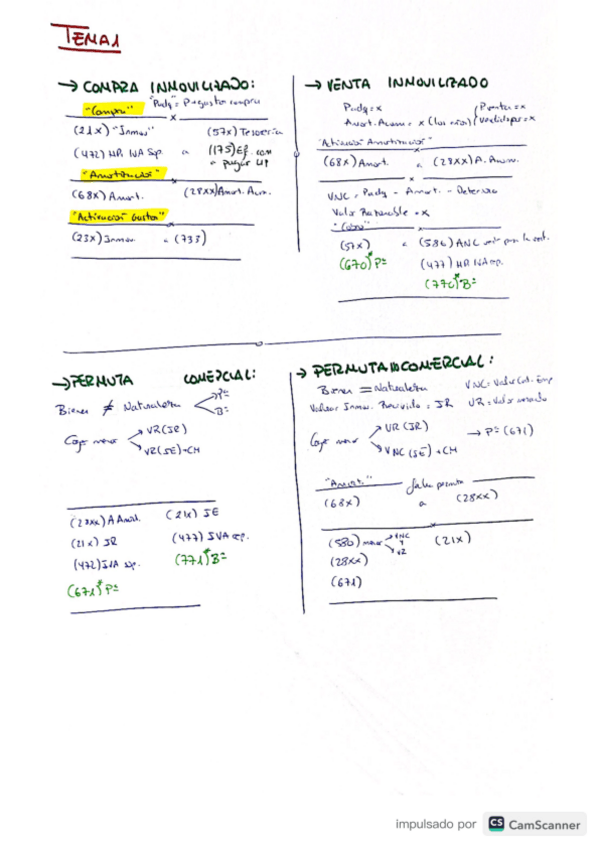 TEMA 1
→ COMPRA INMOVILIZADO:
"Compra" "Padq" = P + gastos compra
(21x) "Inmov" (57x) Tesorería
(472) HP. IVA Sop. a
a pagar LP
"Amortización"
(68x) Amort. (28xx) Amort. Acum.
"Activación Gastos"
(23x) Inmov. a (733)
→ VENTA INMOVILIZADO
Padq = x
Amort. Acum = x
"Activación Amortización"
(68x) Amort. a (28xx) A. Acum.
VNC = Padq - Amort. - Deterioro
Valor Razonable = x
"Cobro"
(57x) a
(670)* P=
(477) HP. IVA rep.
(770)* B=
→ PERMUTA COMERCIAL:
Bienes ≠ Naturaleza P= B=
Coger menor VR (IR)
VR (IE) + CH
(28xx) A Amort. (21x) IE
(21x) IR (477) IVA rep.
(472) IVA sop. (771)* B=
(671)* P=
→ PERMUTA NO COMERCIAL:
Bienes = Naturaleza
Valorar Inmov. Recibido = IR
Coger menor VR (IR) → P= (671)
VNC (IE) + CH
"Amort."
(68x) a (28xx)
(580) menor VNC Y VR (21x)
(28xx)
(671)
impulsado por CS CamScanner